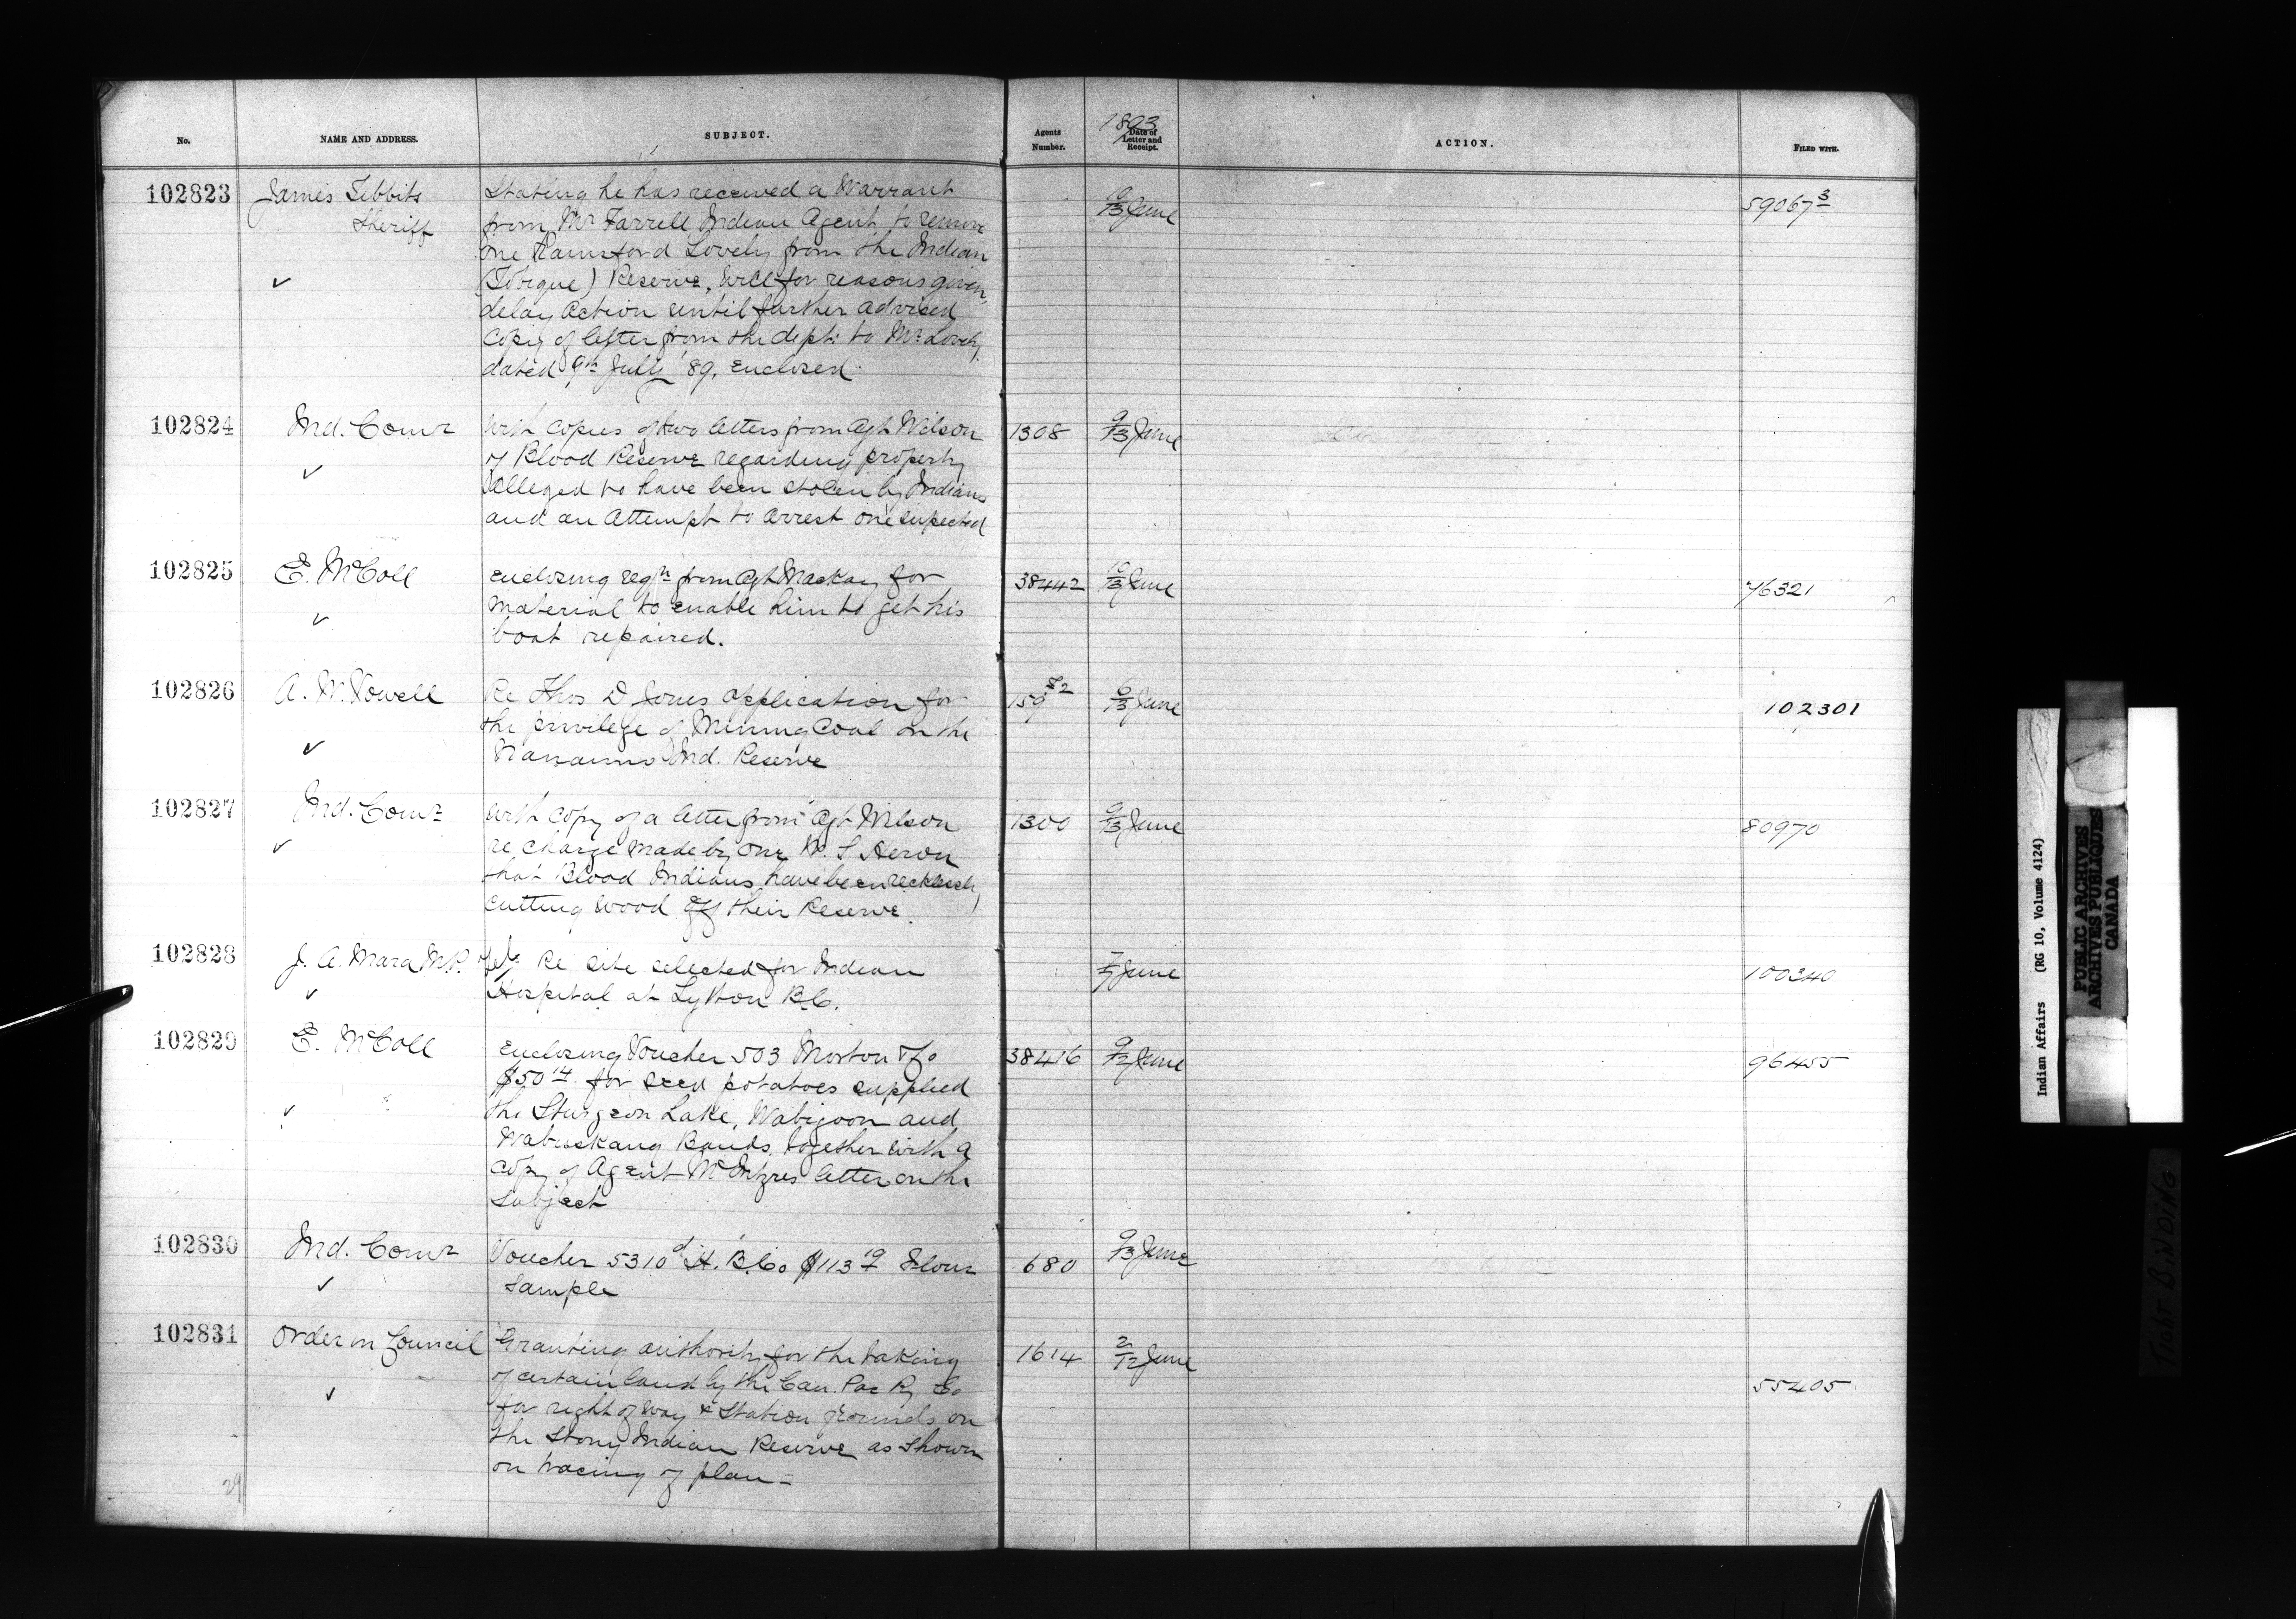 No. NAME AND ADDRESS. SUBJECT. Agents Number. 1893 Date of Letter and Receipt. ACTION. FILED WITH.
102823 James Tibbits Stating he has received a Warrant 10/13 June 59067 3
Sheriff from Mr Farrell Indian Agent to remove
one Rainsford Lovely from the Indian
(Tobique) Reserve, will for reasons given,
delay action until further advised
Copy of letter from the dept: to Mr Lovely
dated 9th July '89, enclosed.
102824 Ind. Comr With copies of two letters from Agt Wilson 1308 9/13 June
of Blood Reserve regarding property
alleged to have been stolen by Indians
and an attempt to arrest one supected
102825 E. McColl Enclosing reqn from Agt Mackay for 38442 10/13 June 76321
material to enable him to get his
boat repaired.
102826 A. W. Vowell Re Thos D Jones application for 159 6/13 June 102301
the privilege of Mining Coal on the
Nanaimo Ind. Reserve
102827 Ind. Comr With copy of a letter from Agt Wilson 1300 9/13 June 80970
re charge made by one S Heron
that Blood Indians have been recklessly
cutting wood off their Reserve.
102828 J. A. Mara M.P. Re site selected for Indian 7/7 June 100340
Hospital at Lytton B.C.
102829 E. McColl Enclosing Voucher 503 Morton & Co 38416 9/12 June 96455
$50 14 for seed potatoes supplied
the Sturgeon Lake, Wabigoon and
Wabuskang Bands, together with a
copy of Agent McIntyres letter on the
subject
102830 Ind. Comr Voucher 5310 H. B. Co $113 19 Flour 680 9/13 June
sample
102831 Order in Council Granting authority for the taking 1614 2/12 June
of certain land by the Can. Pac Ry Co 55405
for right of way & station grounds on
the Stony Indian Reserve as shown
on tracing of plan =
29
Indian Affairs (RG 10, Volume 4124)
PUBLIC ARCHIVES
ARCHIVES PUBLIQUES
CANADA
TIGHT BINDING